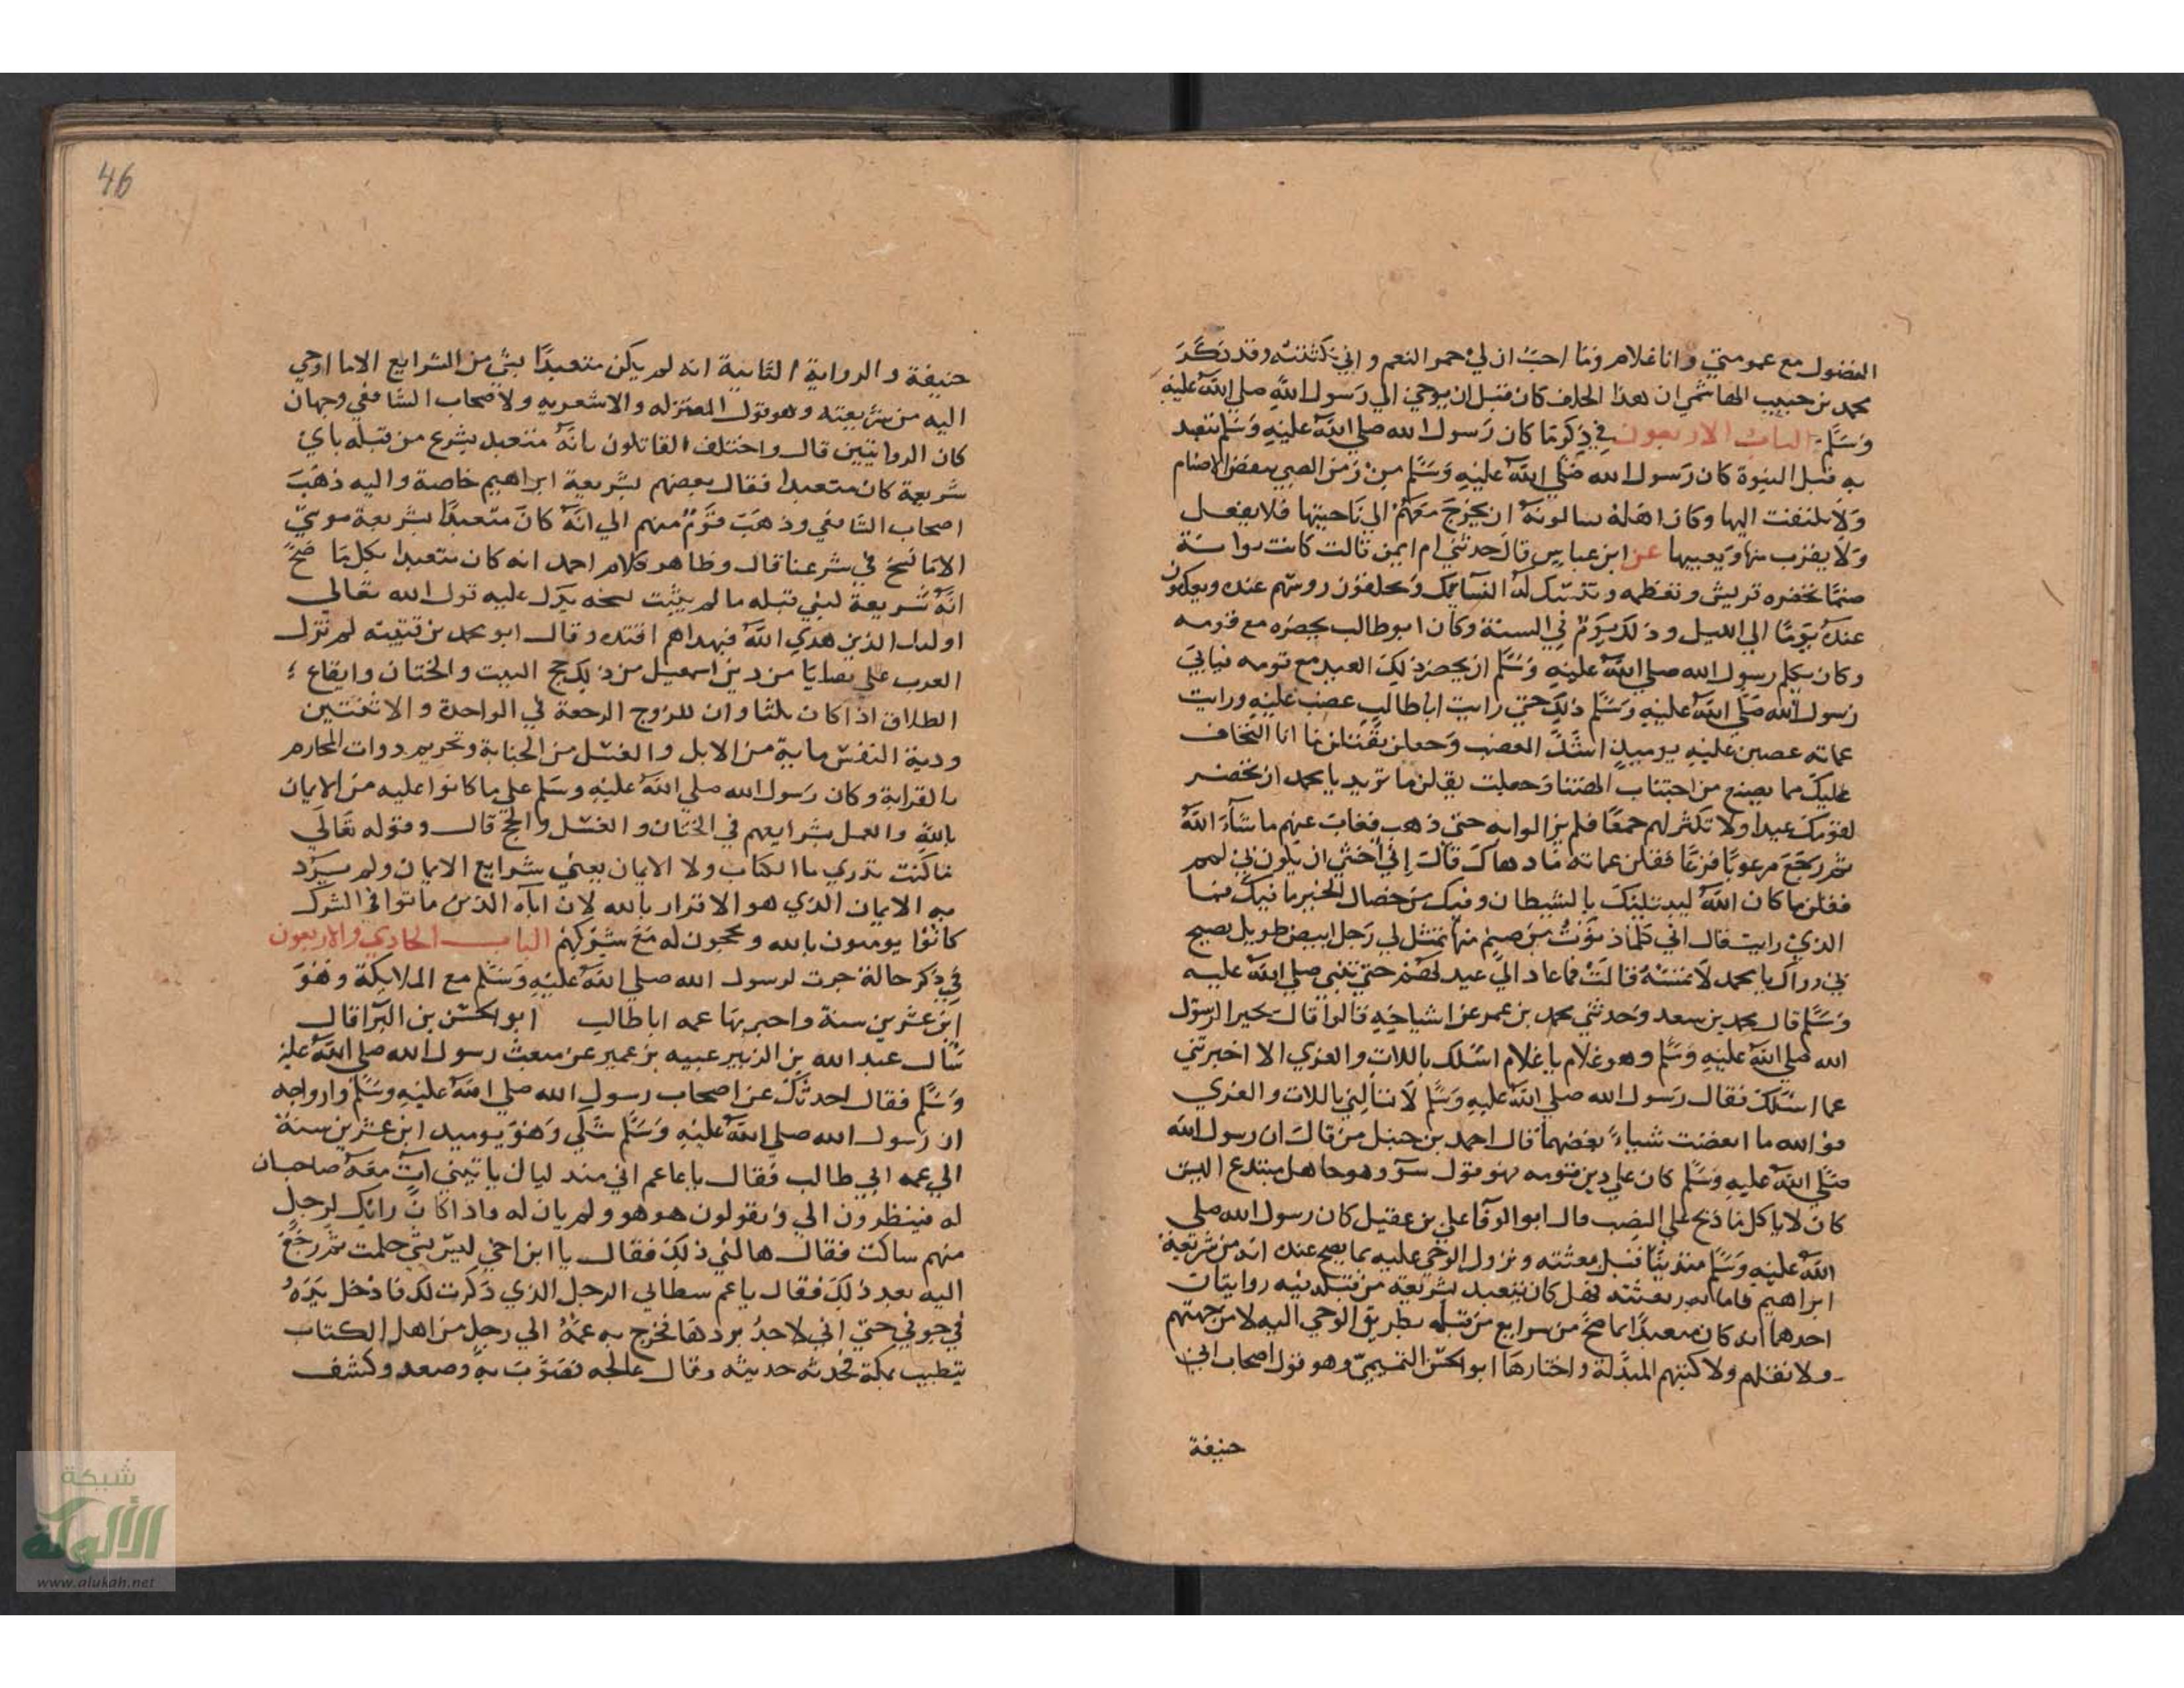 الفضول مع عمومتي وانا غلام وما احب ان لي حمر النعم واني نكثته وقد ذكر
محمد بن حبيب الهاشمي ان هذا الحلف كان قبل ان يوحي الي رسول الله صلي الله عليه
وسلم الباب الاربعون في ذكر ما كان رسول الله صلي الله عليه وسلم يتعبد
به قبل النبوة كان رسول الله صلي الله عليه وسلم من زمن الصبي يبغض الاصنام
ولا يلتفت اليها وكان اهله يسالونه ان يخرج معهم الي ناحيتها فلا يفعل
ولا يقرب منها ويعيبها عن ابن عباس قال حدثتني ام ايمن قالت كانت بوانة
صنما تحضره قريش وتعظمه وتنسك له النسايك ويحلقون روسهم عنده ويعكفون
عنده يوما الي الليل وذلك يوم في السنة وكان ابو طالب يحضره مع قومه
وكان يكلم رسول الله صلي الله عليه وسلم ان يحضر ذلك العيد مع قومه فيابي
رسول الله صلي الله عليه وسلم ذلك حتي رايت ابا طالب غضب عليه ورايت
عماته غضبن عليه يوميذ اشد الغضب وجعلن يقلن انا لنخاف
عليك مما يصنع من اجتناب الهتنا وجعلت يقلن ما تريد يا محمد ان تحضر
لقومك عيدا ولا تكثر لهم جمعا فلم يزالوا به حتي ذهب فغاب عنهم ما شاء الله
ثم رجع مرعوبا فزعا فقلن عماته ما دهاك قال اني اخشي ان يكون بي لمم
فقلن ما كان الله ليبتليك بالشيطان وفيك من خصال الخير ما فيك فما
الذي رايت قال اني كلما دنوت من صنم منها تمثل لي رجل ابيض طويل يصيح
بي وراك يا محمد لا تمسه قالت فما عاد الي عيد لهم حتي تنبي صلي الله عليه
وسلم قال محمد بن سعد وحدثني محمد بن عمر عن اشياخه قالوا قال بحيرا لرسول
الله صلي الله عليه وسلم وهو غلام يا غلام اسلك باللات والعزي الا اخبرتني
عما اسلك فقال رسول الله صلي الله عليه وسلم لا تسالني باللات والعزي
فوالله ما ابغضت شياء بغضهما قال احمد بن حنبل من قال ان رسول الله
صلي الله عليه وسلم كان علي دين قومه فهو قول سوء وهو جاهل مبتدع اليس
كان لا ياكل ما ذبح علي النصب قال ابو الوفا علي بن عقيل كان رسول الله صلي
الله عليه وسلم متدينا قبل بعثته ونزول الوحي عليه بما يصح عنده انه من شريعة
ابراهيم فاما بعد بعثته فهل كان يتعبد بشريعة من قبله فيه روايتان
احدهما انه كان متعبدا بما صح من شرايع من قبله بطريق الوحي اليه لا من جهتهم
ولا نقلهم ولا كتبهم المبدلة واختارها ابو الحسن التميمي وهو قول اصحاب ابي
حنيفة
46
حنيفة والرواية الثانية انه لم يكن متعبدا بشي من الشرايع الا ما اوحي
اليه من شريعته وهو قول المعتزله والاشعريه ولاصحاب الشافعي وجهان
كان الروايتين قال واختلف القائلون بانه متعبد بشرع من قبله باي
شريعة كان متعبدا فقال بعضهم بشريعة ابراهيم خاصة واليه ذهب
اصحاب الشافعي وذهب قوم منهم الي انه كان متعبدا بشريعة موسي
الا ما نسخ في شرعنا قال وظاهر كلام احمد انه كان متعبدا بكل ما صح
انه شريعة لنبي قبله ما لم يثبت نسخه يدل عليه قول الله تعالي
اوليك الذين هدي الله فبهداهم اقتده وقال ابو محمد بن قتيبه لم تزل
العرب علي بقايا من دين اسمعيل من ذلك حج البيت والختان وايقاع
الطلاق اذا كان ثلثا وان للزوج الرجعة في الواحدة والاثنتين
ودية النفس ماية من الابل والغسل من الجنابة وتحريم ذوات المحارم
بالقرابة وكان رسول الله صلي الله عليه وسلم علي ما كانوا عليه من الايمان
بالله والعمل بشرايعهم في الختان والغسل والحج قال وقوله تعالي
ما كنت تدري ما الكتاب ولا الايمان يعني شرايع الايمان ولم يرد
به الايمان الذي هو الاقرار بالله لان اباه الذين ماتوا في الشرك
كانوا يومنون بالله ويحجون له مع شركهم الباب الحادي والاربعون
في ذكر حالة جرت لرسول الله صلي الله عليه وسلم مع الملايكة وهو
ابن عشرين سنة واخبر بها عمه ابا طالب ابو الحسن بن البرا قال
سال عبد الله بن الزبير عبيد بن عمير عن مبعث رسول الله صلي الله عليه
وسلم فقال احدثك عن اصحاب رسول الله صلي الله عليه وسلم وازواجه
ان رسول الله صلي الله عليه وسلم شكي وهو يوميد ابن عشرين سنة
الي عمه ابي طالب فقال يا عم اني منذ ليال ياتيني ات معه صاحبان
له فينظرون الي ويقولون هو هو ولم يان له واذا كان رايك لرجل
منهم ساكت فقال هالني ذلك فقال يا ابن اخي ليس بشي حلمت ثم رجع
اليه بعد ذلك فقال يا عم سطا بي الرجل الذي ذكرت لك فادخل يده
في جوفي حتي اني لاجد بردها فخرج به عمه الي رجل من اهل الكتاب
يتطبب بمكة فحدثه حديثه وقال عالجه فصوب به وصعد وكشف
شبكة
الألوكة
www.alukah.net